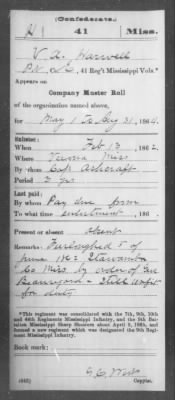 (Confederate.)
H 41 Miss.
V. A. Harwell
Pvt, Co. , 41 Reg't Mississippi Vols.*
Appears on
Company Muster Roll
of the organization named above,
for May 1 to Aug 31, 1862.
Enlisted:
When Feb 13, 1862.
Where Verona Miss
By whom Capt Ashcraft
Period 3 yrs
Last paid:
By whom Pay due from
To what time enlistment, 186 .
Present or absent absent
Remarks: Furloughed 5 of
June 1862 Itawamba
Co Miss by order of Gen
Beauregard - Still unfit
for duty
*This regiment was consolidated with the 7th, 9th, 10th
and 44th Regiments Mississippi Infantry, and the 9th Bat-
talion Mississippi Sharp Shooters about April 9, 1865, and
formed a new regiment which was designated the 9th Regi-
ment Mississippi Infantry.
Book mark:
(642)
Copyist.